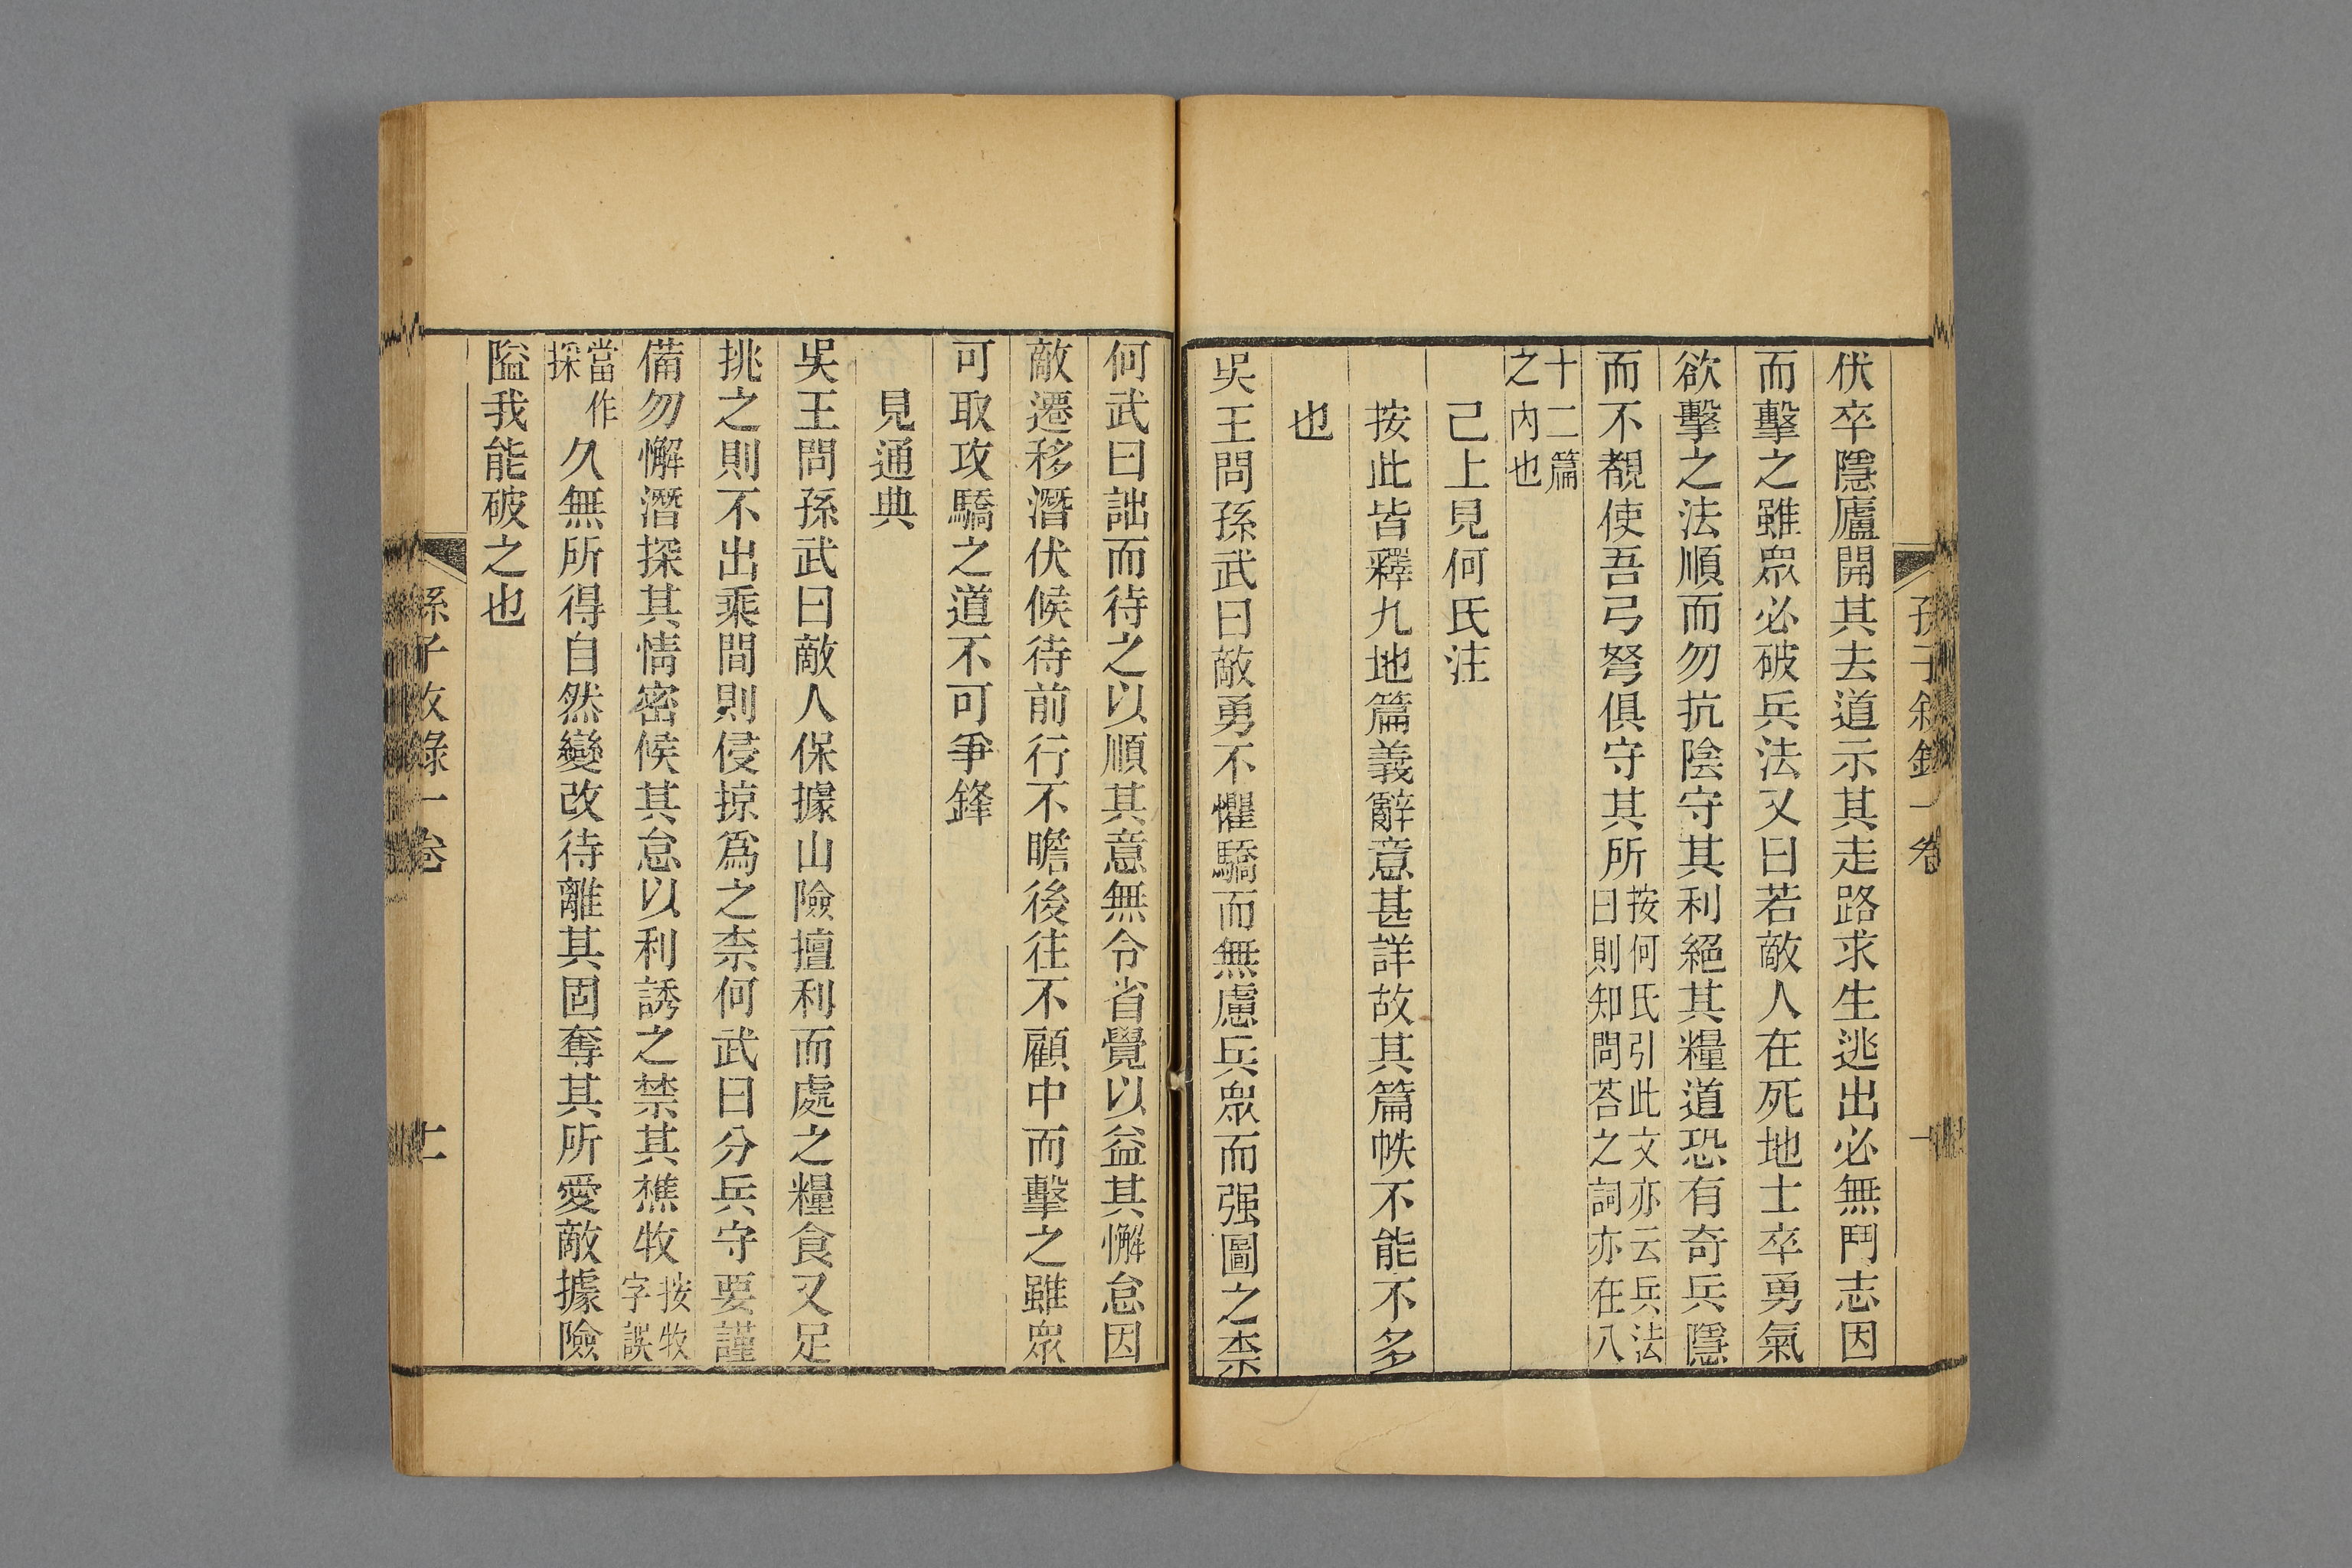 孫子敘錄一卷
伏卒隱廬開其去道示其走路求生逃出必無鬥志因
而擊之雖眾必破兵法又曰若敵人在死地士卒勇氣
欲擊之法順而勿抗陰守其利絕其糧道恐有奇兵隱
而不覩使吾弓弩俱守其所按何氏引此文亦云兵法
曰則知問荅之詞亦在八
十二篇
之內也
己上見何氏注
按此皆釋九地篇義辭意甚詳故其篇帙不能不多
也
吳王問孫武曰敵勇不懼驕而無慮兵眾而强圖之柰
何武曰詘而待之以順其意無令省覺以益其懈怠因
敵遷移潛伏候待前行不瞻後往不顧中而擊之雖眾
可取攻驕之道不可爭鋒
見通典
吳王問孫武曰敵人保據山險擅利而處之糧食又足
挑之則不出乘間則侵掠爲之柰何武曰分兵守要謹
備勿懈潛探其情密候其怠以利誘之禁其樵牧按牧
字誤
當作
採
久無所得自然變改待離其固奪其所愛敵據險
隘我能破之也
孫子敘錄一卷